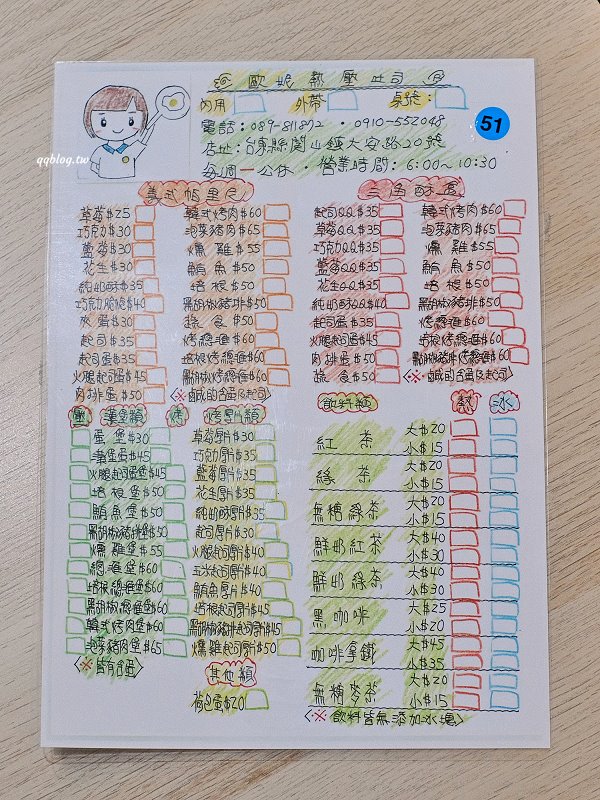 歐妮熱壓吐司
內用 外帶 桌號:
電話:089-811872 · 0910-552048
店址:台東縣關山鎮大安路20號
每週一公休 · 營業時間:6:00~10:30
51
qqblog.tw
美式帕里尼
草莓$25 韓式烤肉$60
巧克力$30 泡菜豬肉$65
藍莓$30 燻雞$55
花生$30 鮪魚$50
純奶酥$35 培根$50
巧克力脆脆$40 黑胡椒豬排$50
夾蛋$30 蔬食$50
起司$35 烤總匯$60
起司蛋$35 培根烤總匯$60
火腿起司蛋$45 黑胡椒烤總匯$60
肉排蛋$50 <※鹹的含蛋&起司>
三角酥壓
起司QQ$35 韓式烤肉$60
草莓QQ$35 泡菜豬肉$65
巧克力QQ$35 燻雞$55
藍莓QQ$35 鮪魚$50
花生QQ$35 培根$50
純奶酥QQ$40 黑胡椒豬排$50
起司蛋$35 烤總匯$60
火腿起司蛋$45 培根烤總匯$60
肉排蛋$50 黑胡椒豬排烤總匯$60
蔬食$50 <※鹹的含蛋&起司>
壓 漢堡類 烤
蛋堡$30
漢堡蛋$45
火腿起司蛋堡$45
培根堡$50
鮪魚堡$50
黑胡椒豬排堡$50
燻雞堡$55
總匯堡$60
培根總匯堡$60
黑胡椒總匯堡$60
韓式烤肉堡$60
泡菜豬肉堡$65
<※皆有含蛋>
烤厚片類
草莓厚片$35
巧克厚片$35
藍莓厚片$35
花生厚片$35
純奶酥厚片$35
起司厚片$30
火腿起司厚片$40
玉米起司厚片$40
鮪魚厚片$40
培根起司厚片$45
黑胡椒豬排起司厚片$45
燻雞起司厚片$50
其他類
荷包蛋$20
飲料類 熱 冰
紅茶 大$20
小$15
綠茶 大$20
小$15
無糖綠茶 大$20
小$15
鮮奶紅茶 大$40
小$30
鮮奶綠茶 大$40
小$30
黑咖啡 大$25
小$20
咖啡拿鐵 大$45
小$35
無糖麥茶 大$20
小$15
<※飲料皆無添加冰塊>